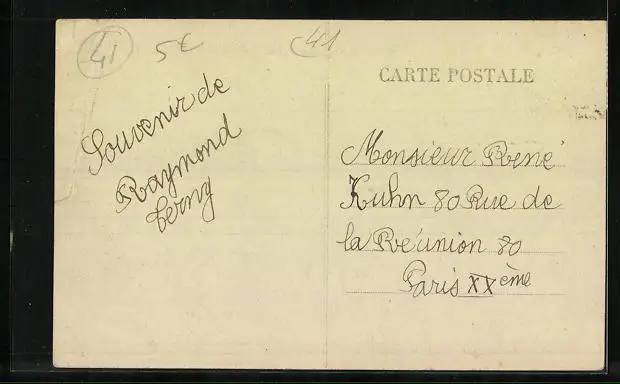 41 5€ 41
CARTE POSTALE
Souvenir de
Raymond
Berny
Monsieur René
Kuhn 80 Rue de
la Réunion 80
Paris XXème